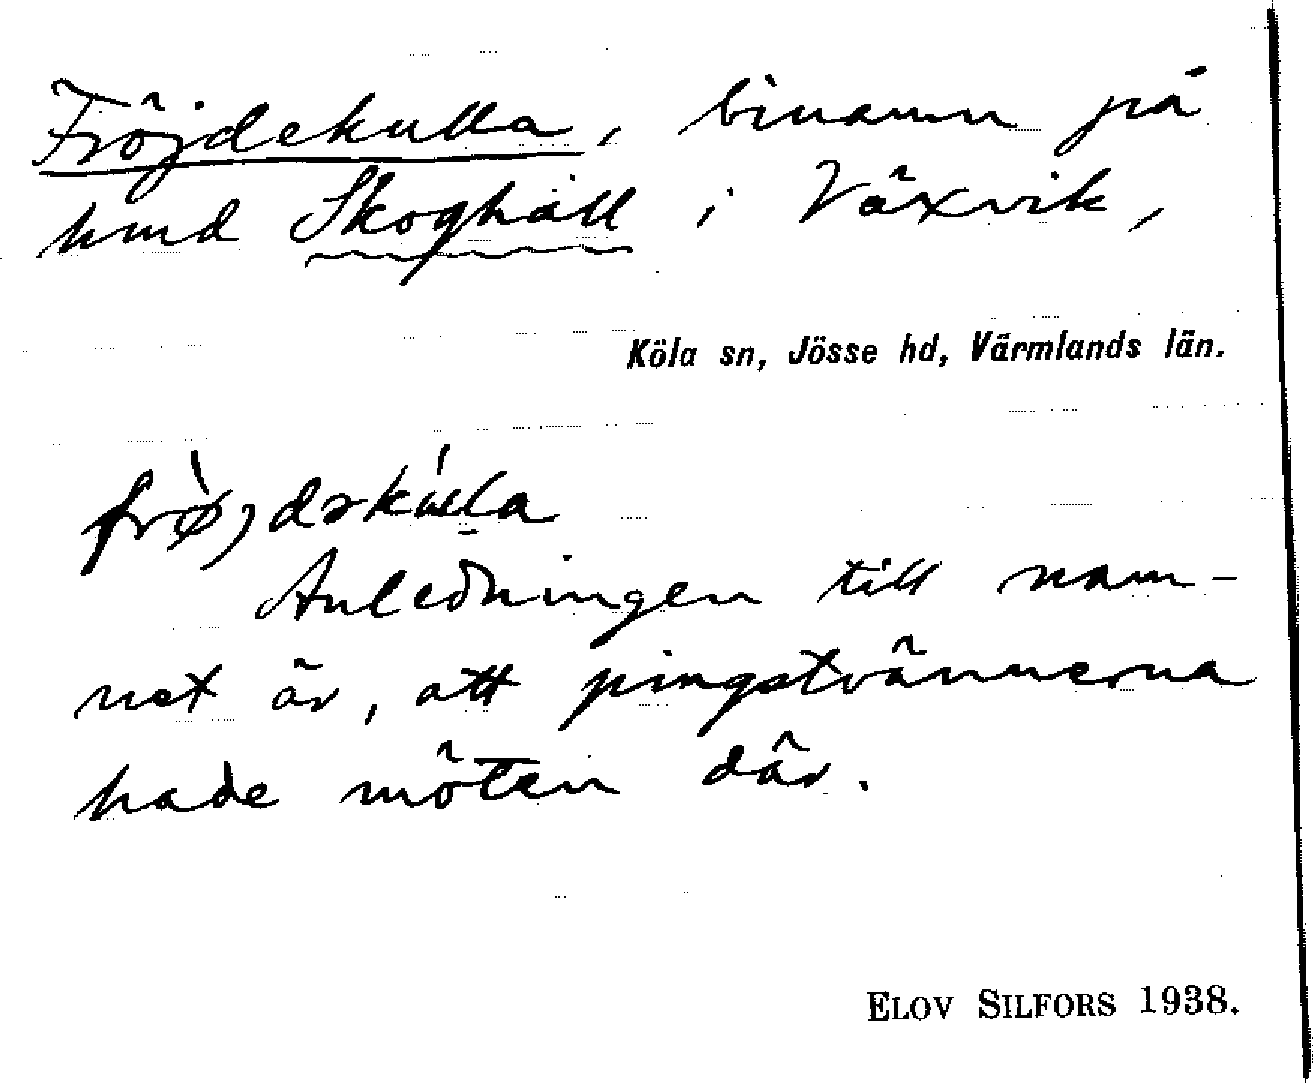 Fröjdekulla, binamn på
hmd Skoghäll i Växvik,
Köla sn, Jösse hd, Värmlands län.
frø̀jdəkúlla
Anledningen till nam-
net är, att pingstvännerna
hade möten där.
ELOV SILFORS 1938.